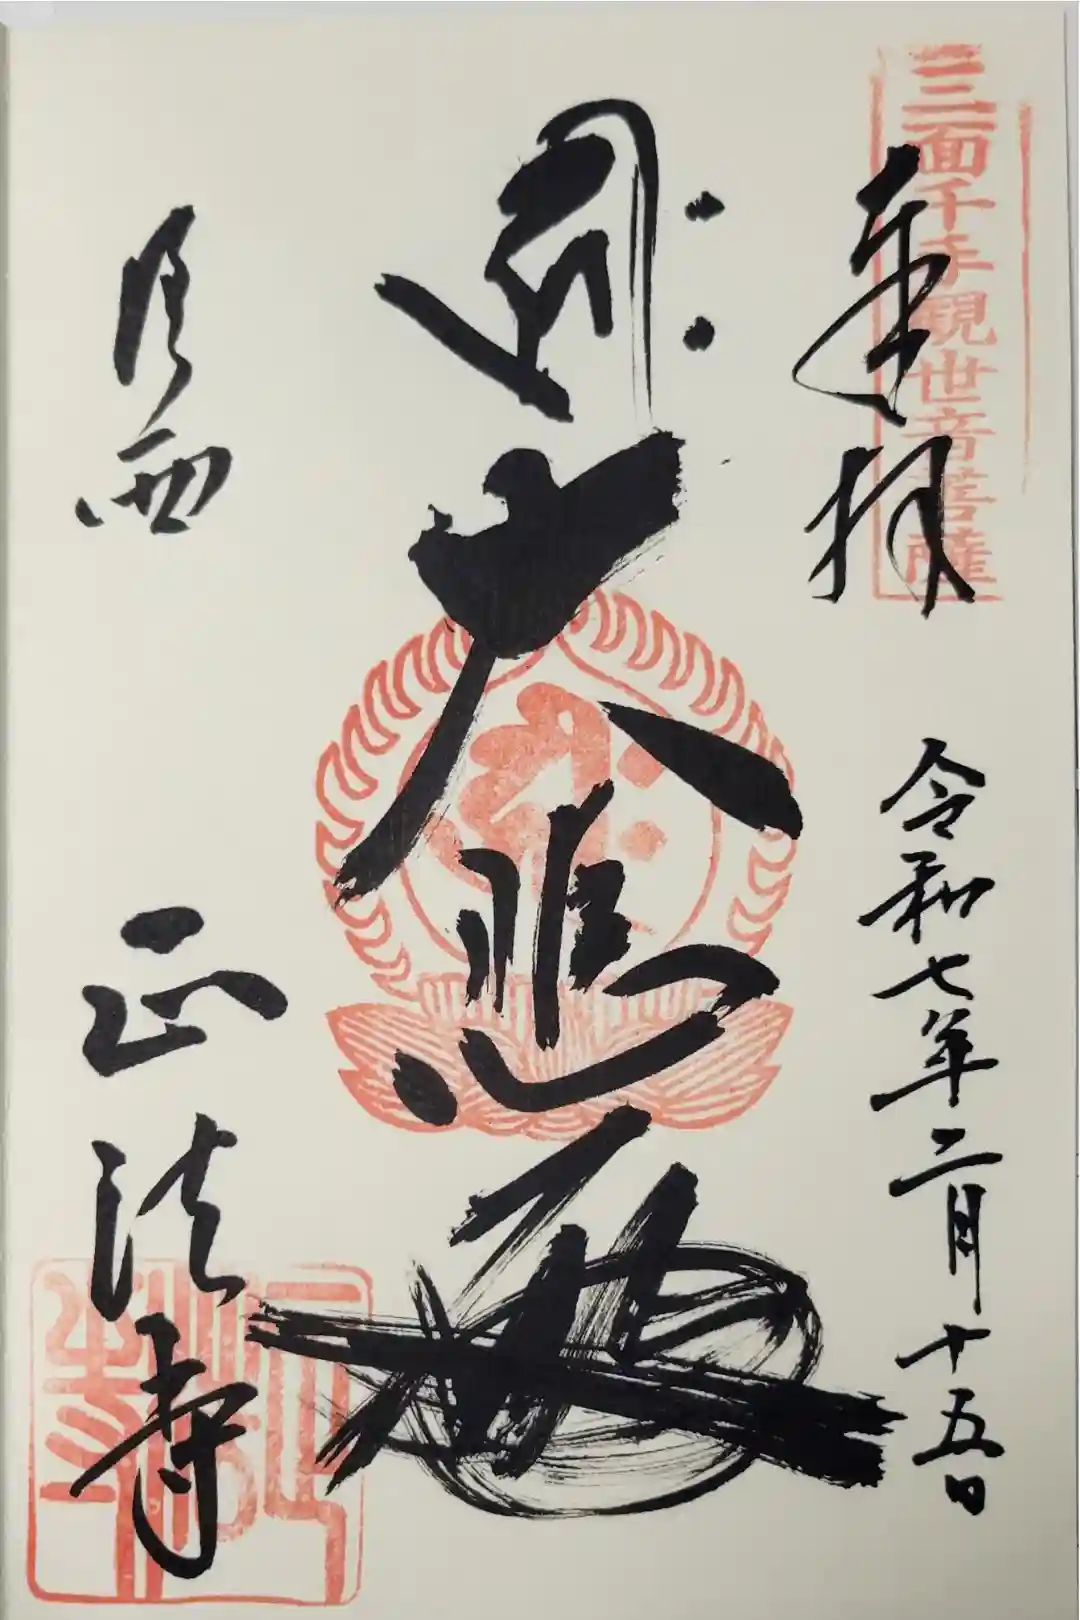 三面千手観世音菩薩
奉拝
令和七年二月十五日
ह्रीः
大悲殿
洛西
正法寺